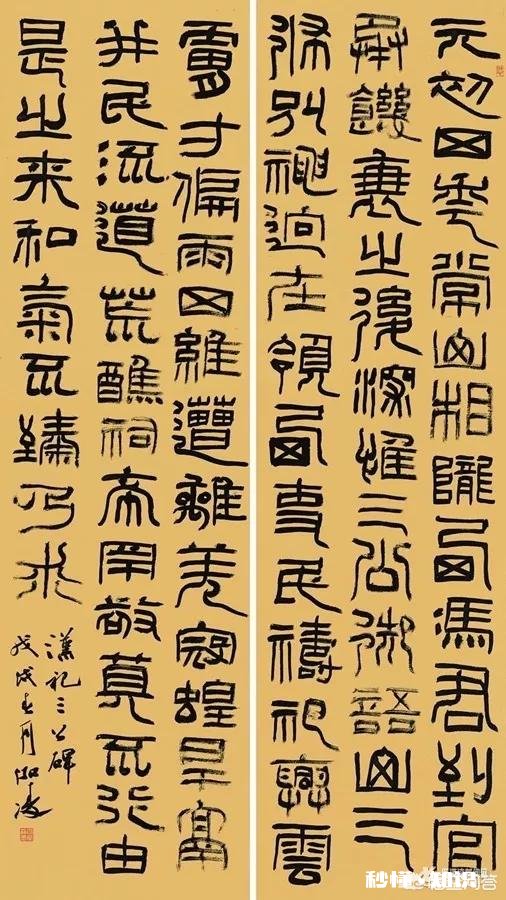 元初四年常山相隴西馮君到官
承饑衰之後深惟三公御語山三
條別神迥在領西吏民禱祀興雲
膚寸偏雨四維遭離羌寇蝗旱鬲
并民流道荒醮祠希罕敬奠不行由
是之来和氣不臻乃求
漢祀三公碑
戊戌春月
秒懂